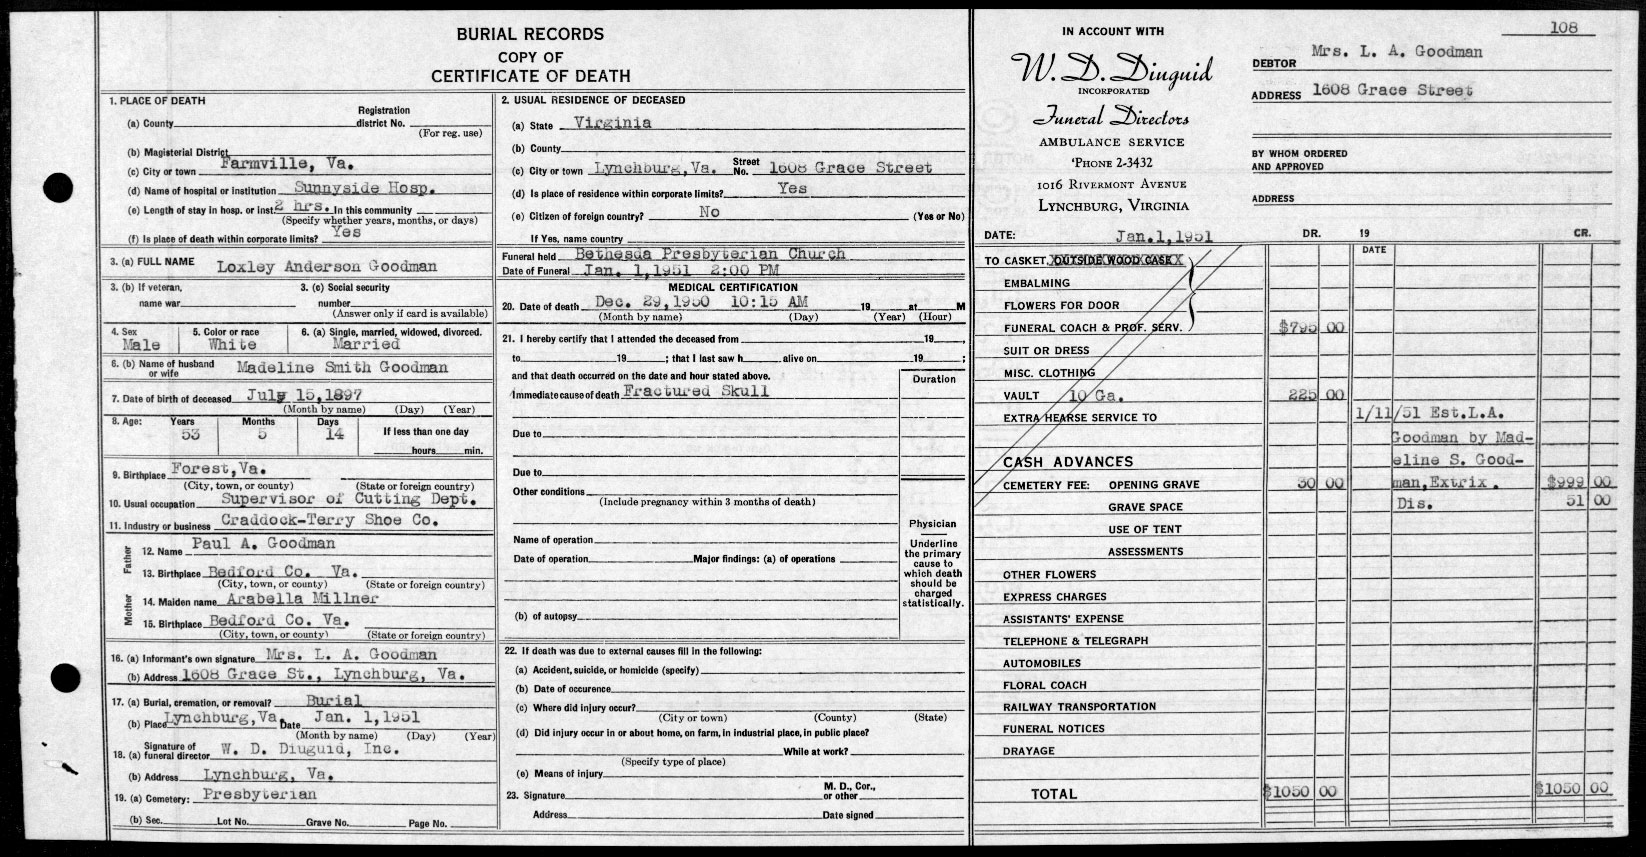 BURIAL RECORDS
COPY OF
CERTIFICATE OF DEATH
1. PLACE OF DEATH
(a) County Registration district No.
(For reg. use)
(b) Magisterial District
(c) City or town Farmville, Va.
(d) Name of hospital or institution Sunnyside Hosp.
(e) Length of stay in hosp. or inst. 2 hrs. In this community
(Specify whether years, months, or days)
(f) Is place of death within corporate limits? Yes
3. (a) FULL NAME Loxley Anderson Goodman
3. (b) If veteran, name war 3. (c) Social security number
(Answer only if card is available)
4. Sex 5. Color or race 6. (a) Single, married, widowed, divorced.
Male White Married
6. (b) Name of husband or wife Madeline Smith Goodman
7. Date of birth of deceased July 15,1897
(Month by name) (Day) (Year)
8. Age: Years Months Days If less than one day
53 5 14 hours min.
9. Birthplace Forest,Va.
(City, town, or county) (State or foreign country)
10. Usual occupation Supervisor of Cutting Dept.
11. Industry or business Craddock-Terry Shoe Co.
Father
12. Name Paul A. Goodman
13. Birthplace Bedford Co. Va.
(City, town, or county) (State or foreign country)
Mother
14. Maiden name Arabella Millner
15. Birthplace Bedford Co. Va.
(City, town, or county) (State or foreign country)
16. (a) Informant's own signature Mrs. L. A. Goodman
(b) Address 1608 Grace St., Lynchburg, Va.
17. (a) Burial, cremation, or removal? Burial
(b) Place Lynchburg,Va. Date Jan. 1,1951
(Month by name) (Day) (Year)
18. (a) Signature of funeral director W. D. Diuguid, Inc.
(b) Address Lynchburg, Va.
19. (a) Cemetery: Presbyterian
(b) Sec. Lot No. Grave No. Page No.
2. USUAL RESIDENCE OF DECEASED
(a) State Virginia
(b) County
(c) City or town Lynchburg,Va. Street No. 1608 Grace Street
(d) Is place of residence within corporate limits? Yes
(e) Citizen of foreign country? No (Yes or No)
If Yes, name country
Funeral held Bethesda Presbyterian Church
Date of Funeral Jan. 1,1951 2:00 PM
MEDICAL CERTIFICATION
20. Date of death Dec. 29,1950 10:15 AM 19 at M
(Month by name) (Day) (Year) (Hour)
21. I hereby certify that I attended the deceased from 19 ,
to 19 ; that I last saw h alive on 19 ;
and that death occurred on the date and hour stated above.
Duration
Immediate cause of death Fractured Skull
Due to
Due to
Other conditions
(Include pregnancy within 3 months of death)
Name of operation
Date of operation Major findings: (a) of operations
(b) of autopsy
Physician
Underline
the primary
cause to
which death
should be
charged
statistically.
22. If death was due to external causes fill in the following:
(a) Accident, suicide, or homicide (specify)
(b) Date of occurence
(c) Where did injury occur?
(City or town) (County) (State)
(d) Did injury occur in or about home, on farm, in industrial place, in public place?
While at work?
(Specify type of place)
(e) Means of injury
23. Signature M. D., Cor., or other
Address Date signed
108
IN ACCOUNT WITH
W. D. Diuguid
INCORPORATED
Funeral Directors
AMBULANCE SERVICE
'PHONE 2-3432
1016 RIVERMONT AVENUE
LYNCHBURG, VIRGINIA
DEBTOR Mrs. L. A. Goodman
ADDRESS 1608 Grace Street
BY WHOM ORDERED
AND APPROVED
ADDRESS
DATE: Jan.1,1951 DR. 19 CR.
DATE
TO CASKET, OUTSIDE WOOD CASE
EMBALMING
FLOWERS FOR DOOR
FUNERAL COACH & PROF. SERV. $795 00
SUIT OR DRESS
MISC. CLOTHING
VAULT 10 Ga. 225 00
EXTRA HEARSE SERVICE TO 1/11/51 Est.L.A.
Goodman by Mad-
CASH ADVANCES eline S. Good-
CEMETERY FEE: OPENING GRAVE 30 00 man,Extrix. $999 00
GRAVE SPACE Dis. 51 00
USE OF TENT
ASSESSMENTS
OTHER FLOWERS
EXPRESS CHARGES
ASSISTANTS' EXPENSE
TELEPHONE & TELEGRAPH
AUTOMOBILES
FLORAL COACH
RAILWAY TRANSPORTATION
FUNERAL NOTICES
DRAYAGE
TOTAL $1050 00 $1050 00